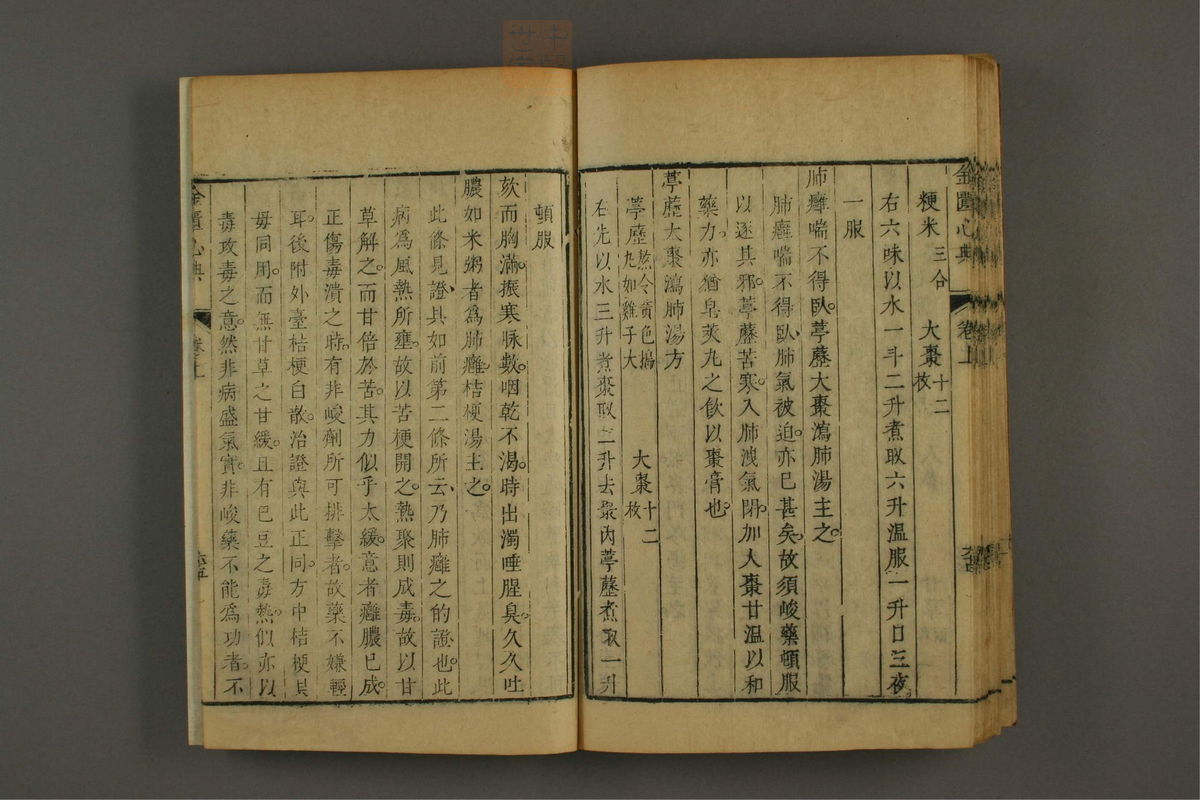 金匱心典 卷上
粳米三合 大棗十二枚
右六味以水一斗二升煮取六升温服一升日三夜
一服
肺癰喘不得臥葶藶大棗瀉肺湯主之
肺癰喘不得臥肺氣被迫亦已甚矣故須峻藥頓服
以逐其邪葶藶苦寒入肺洩氣閉加大棗甘温以和
藥力亦猶皂莢丸之飲以棗膏也
葶藶大棗瀉肺湯方
葶藶熬令黄色搗丸如雞子大 大棗十二枚
右先以水三升煮棗取二升去棗內葶藶煮取一升
頓服
欬而胸滿振寒脉數咽乾不渴時出濁唾腥臭久久吐
膿如米粥者為肺癰桔梗湯主之
此條見證具如前第二條所云乃肺癰之的證也此
病為風熱所壅故以苦梗開之熱聚則成毒故以甘
草解之而甘倍於苦其力似乎太緩意者癰膿已成
正傷毒潰之時有非峻劑所可排擊者故藥不嫌輕
耳後附外臺桔梗白散治證與此正同方中桔梗貝
母同用而無甘草之甘緩且有巴豆之毒熱似亦以
毒攻毒之意然非病盛氣實非峻藥不能為功者不
金匱心典 卷上